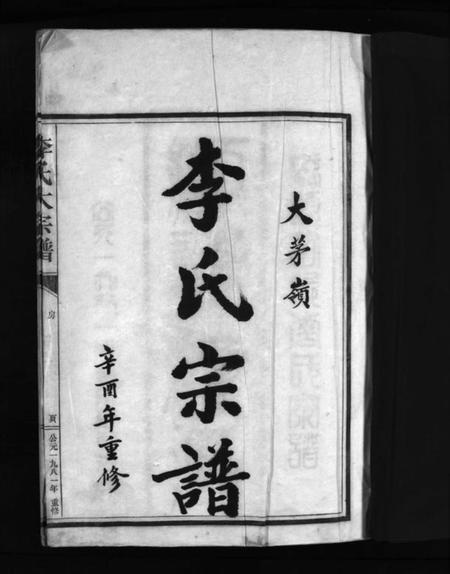 大茅嶺
李氏宗譜
辛酉年重修
李氏大宗譜
房
頁
公元一九八一年 重修